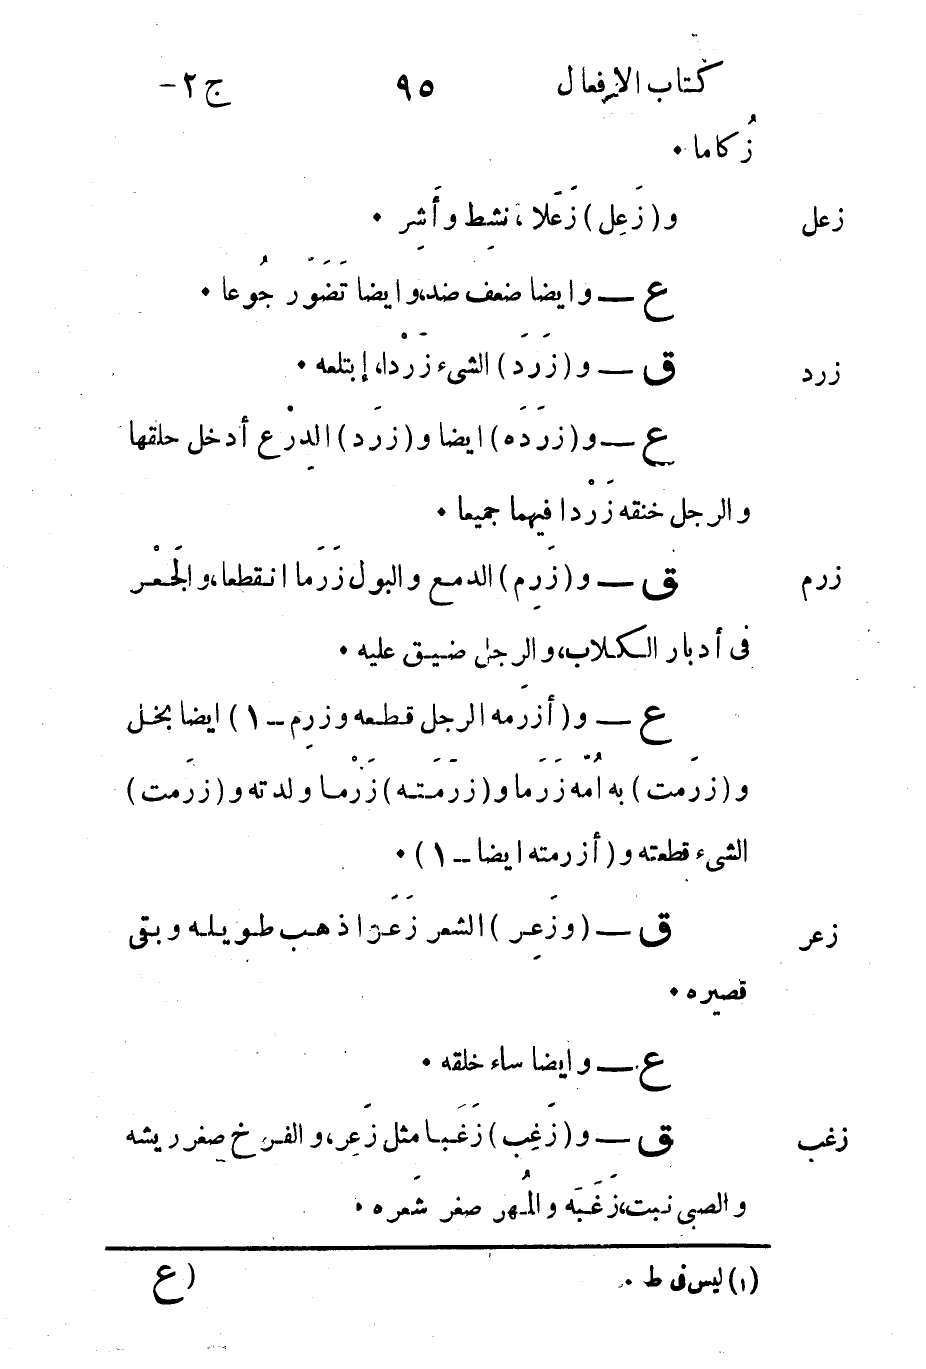 كتاب الافعال ٩٥ ج ٢-
زُكاما ٠
زعل و (زَعِل) زَعَلا، نشِط وأَشِر ٠
ع — وايضا ضعف ضد، وايضا تَضَوَّر جُوعا ٠
زرد ق — و (زَرَد) الشىء زَرْدا، إبتلعه ٠
ع — و (زَرَدَه) ايضا و (زرَد) الدِرْع أدخل حلقها
والرجل خنقه زَرْدا فيهما جميعا ٠
زرم ق — و (زَرِم) الدمع والبول زَرَما انقطعا، والجَعْر
فى أدبار الكلاب، والرجل ضيق عليه ٠
ع — و (أزرَمه الرجل قطعه وزرِم – ١) ايضا بخل
و (زرَمت) به اُمّه زَرَما و (زرّمَته) زَرْما ولدته و (زرَمت)
الشىء قطعته و (أزرمته ايضا – ١) ٠
زعر ق — (وزَعِر) الشعر زَعَرا ذهب طويله وبقى
قصيره ٠
ع — وايضا ساء خلقه ٠
زغب ق — و (زَغِب) زَغَبا مثل زَعِر، والفرخ صغر ريشه
والصبى نبت، زَغَبَه والمُهر صغر شَعره ٠
(١) ليس فى ط ٠
(ع